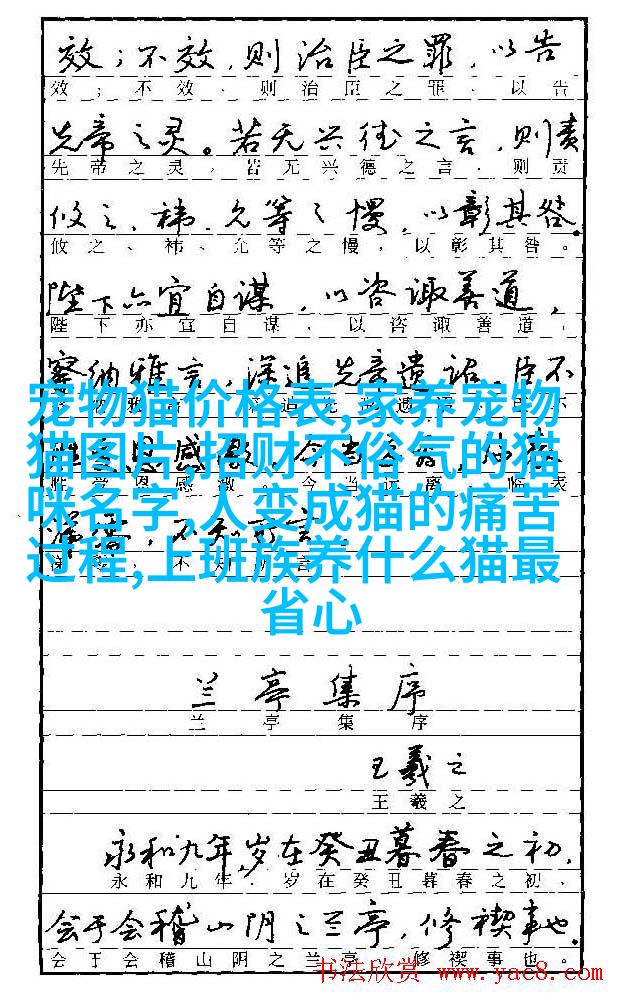 效;不效,则治臣之罪,以告
效;不效、则治臣之罪、以告
先帝之灵。若无兴德之言,则责
先帝之灵,若无兴德之言,则责
攸之、祎、允等之慢,以彰其咎。
攸之、祎、允等之慢,以彰其咎。
陛下亦宜自谋,以咨诹善道,
陛下亦宜自谋,以咨诹善道,
察纳雅言,深追先帝遗诏。臣不
宠物猫价格表,家养宠物
猫图片,招财不俗气的猫
咪名字,人变成猫的痛苦
过程,上班族养什么猫最
省心
受恩感激。今当远离,临表
不知所言
兰亭集序
兰亭集序
王羲之
王羲之
永和九年,岁在癸丑暮春之初,
永和九年,岁在癸丑暮春之初、
会于会稽山阴之兰亭,修禊事也。
会于会稽山阴之兰亭,修禊事也。
书法欣赏 www.yac8.com